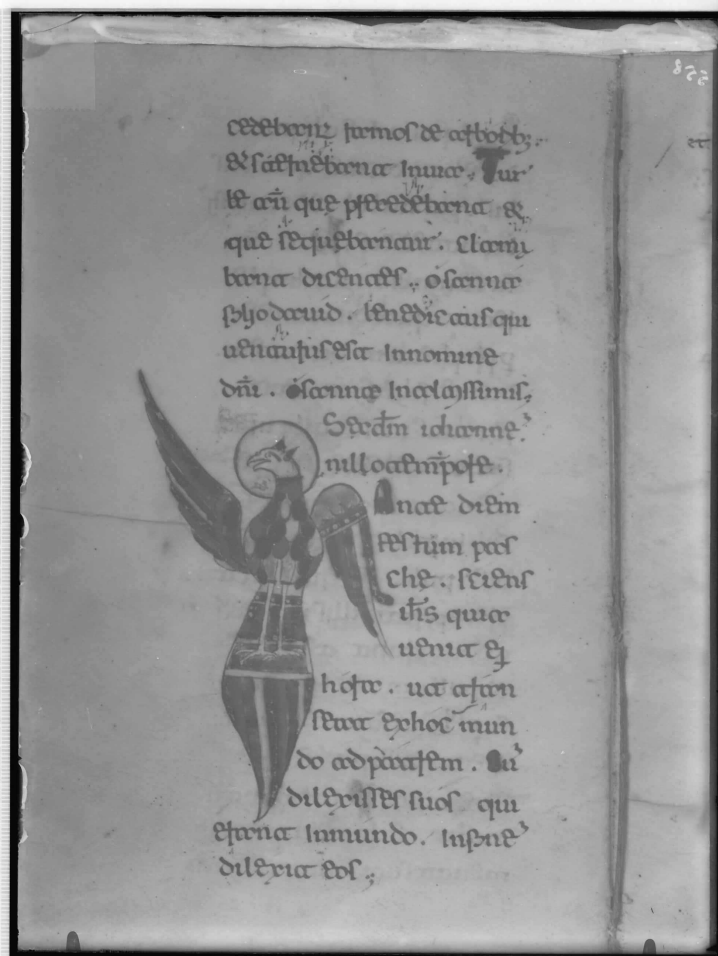 cedebant ramos de arborib;
et sternebant in uia. Tur
be aut̄ que p̄cedebant et
que sequebantur. Clama
bant dicentes. Osanna
filio dauid. benedictus qui
uenturus est in nomine
dn̄i. Osanna in altissimis.
Secdm̄ iohanne̅.
In illo tempore.
Ante diem
festum pas
che. sciens
ih̄s quia
uenit ei
hora. ut tran
seat ex hoc mun
do ad patrem. Cu̅
dilexisset suos qui
erant in mundo. in fine̅
dilexit eos.